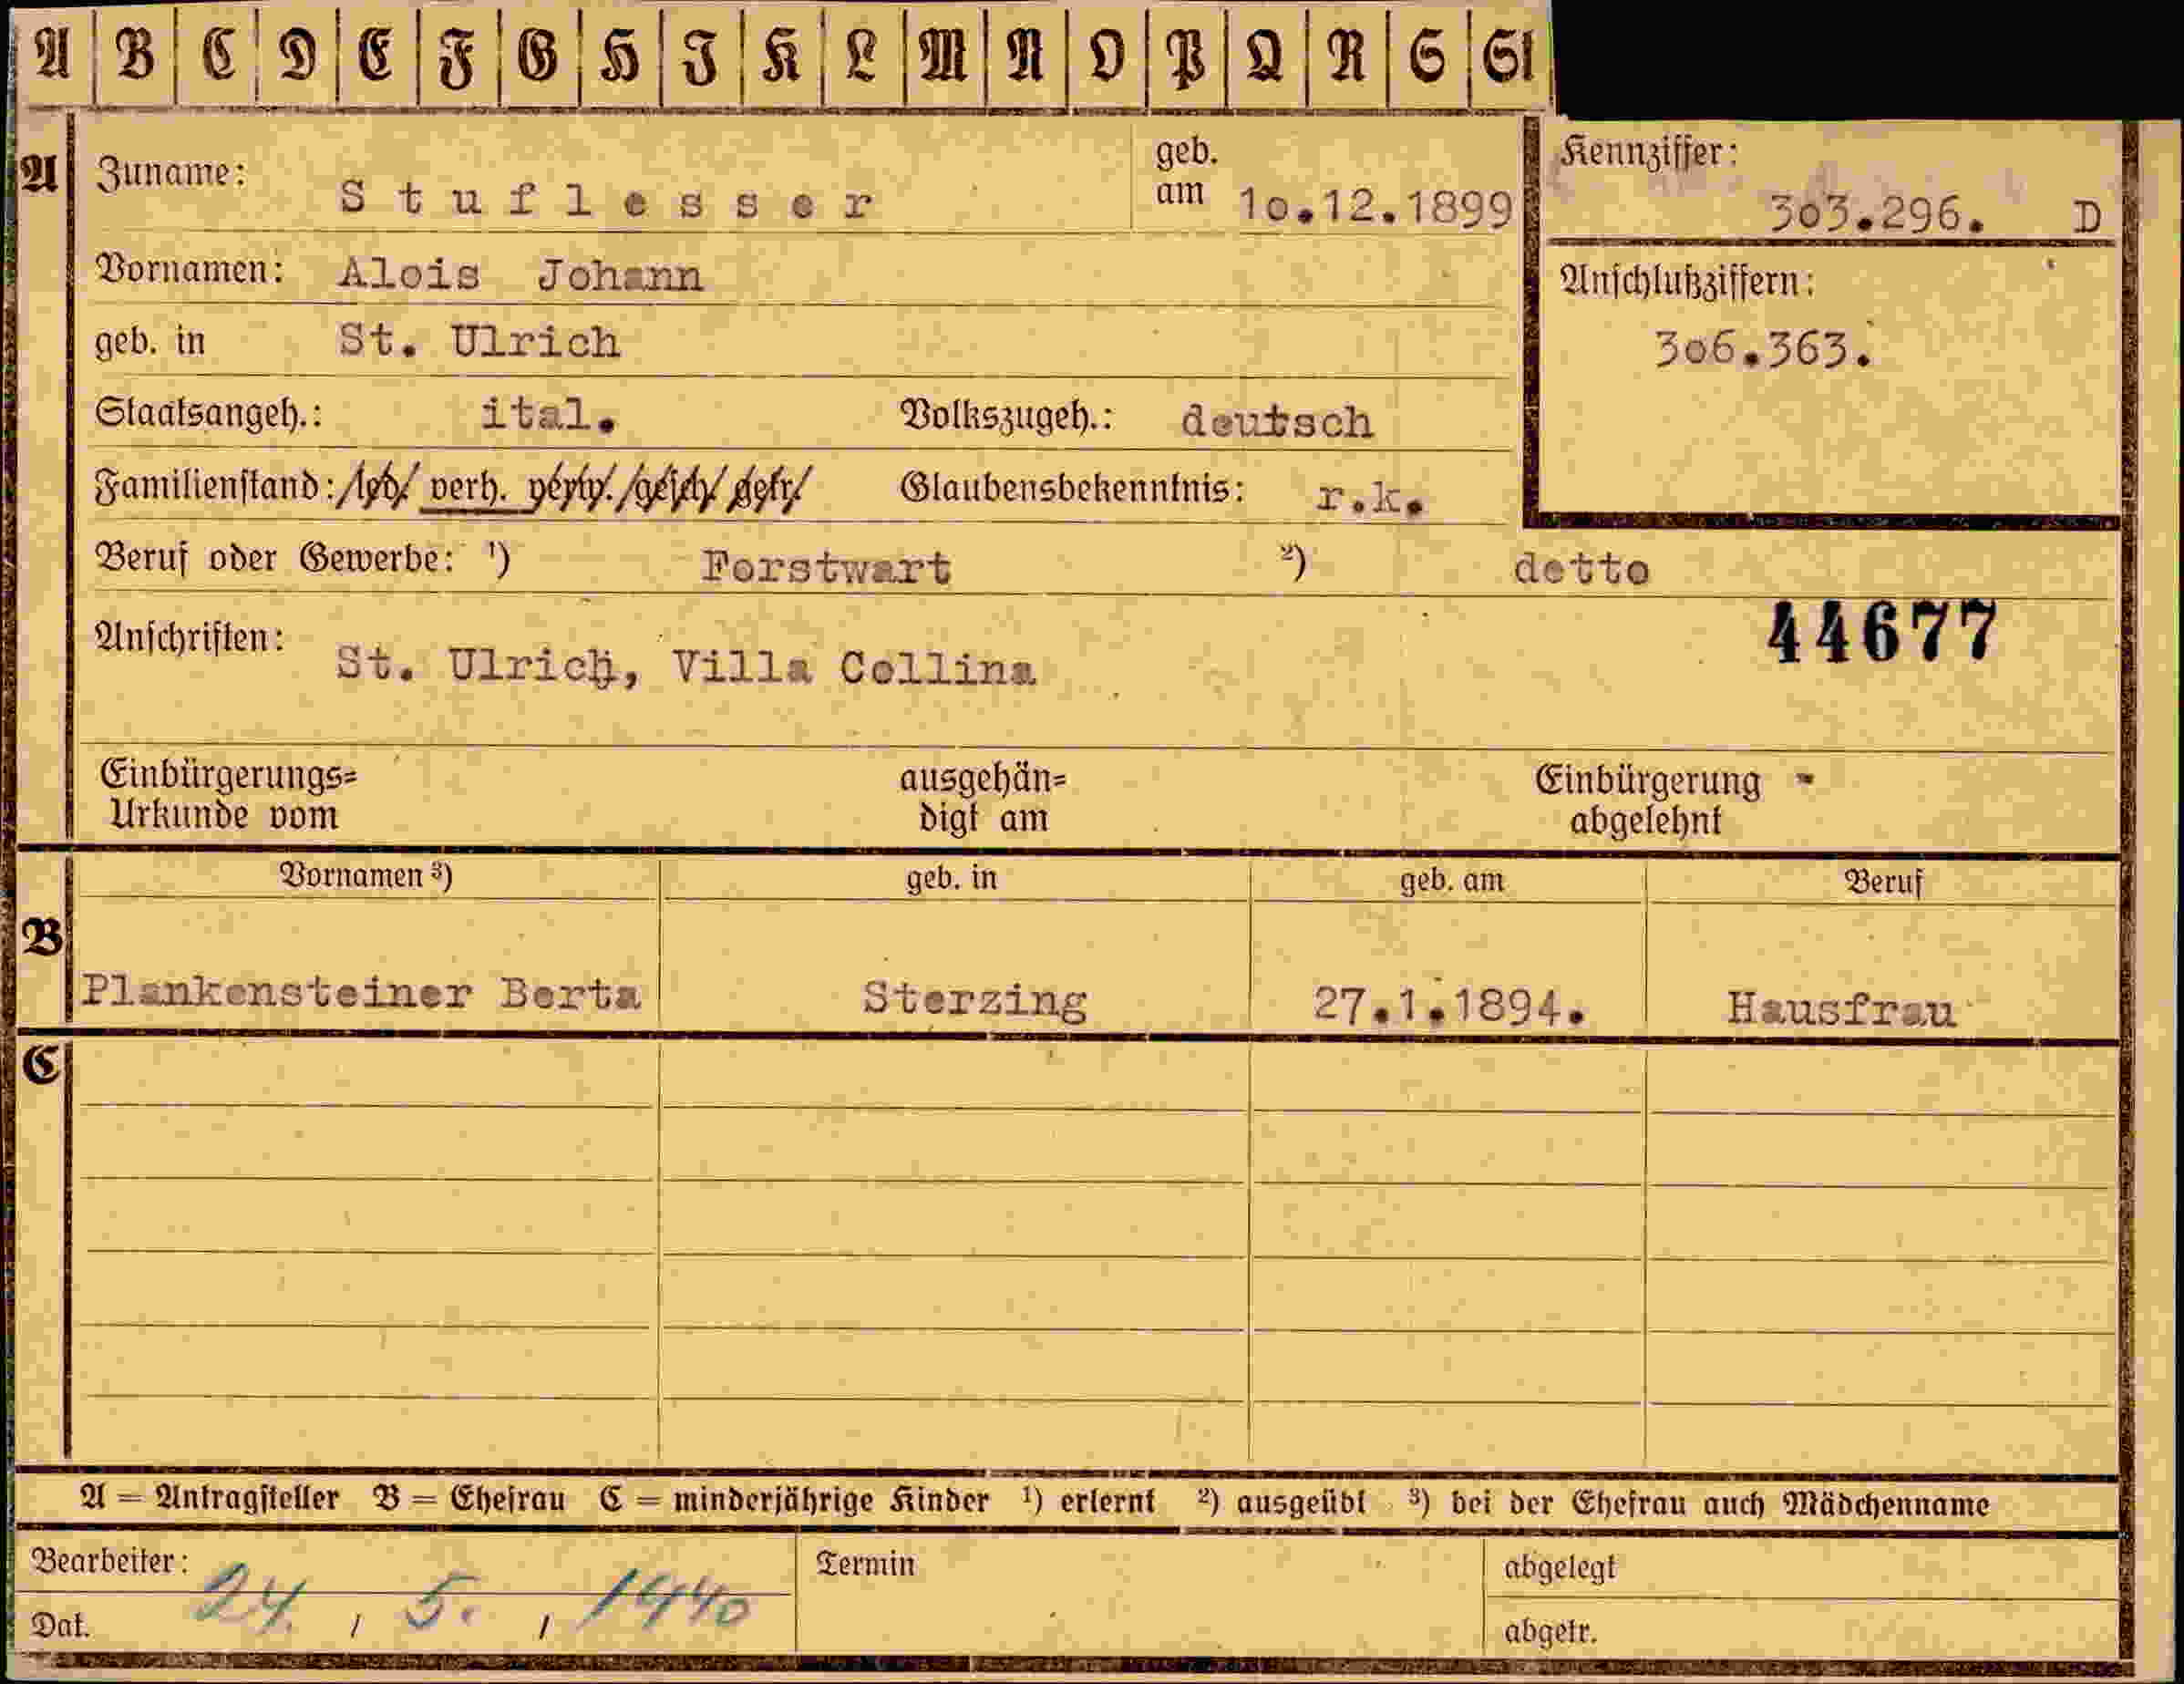 A B C D E F G H I K L M N O P Q R S St
A Zuname: Stuflesser geb. am 10.12.1899 Kennziffer: 303.296. D
Vornamen: Alois Johann Anschlußziffern:
geb. in St. Ulrich 306.363.
Staatsangeh.: ital. Volkszugeh.: deutsch
Familienstand: led. verh. verw. gesch. getr. Glaubensbekenntnis: r.k.
Beruf oder Gewerbe: ¹) Forstwart ²) detto
44677
Anschriften: St. Ulrich, Villa Collina
Einbürgerungs= ausgehän= Einbürgerung -
Urkunde vom digt am abgelehnt
Vornamen ³) geb. in geb. am Beruf
B
Plankensteiner Berta Sterzing 27.1.1894. Hausfrau
C
A = Antragsteller B = Ehefrau C = minderjährige Kinder ¹) erlernt ²) ausgeübt ³) bei der Ehefrau auch Mädchenname
Bearbeiter: Termin abgelegt
Dat. 24. / 5. / 1940 abgetr.